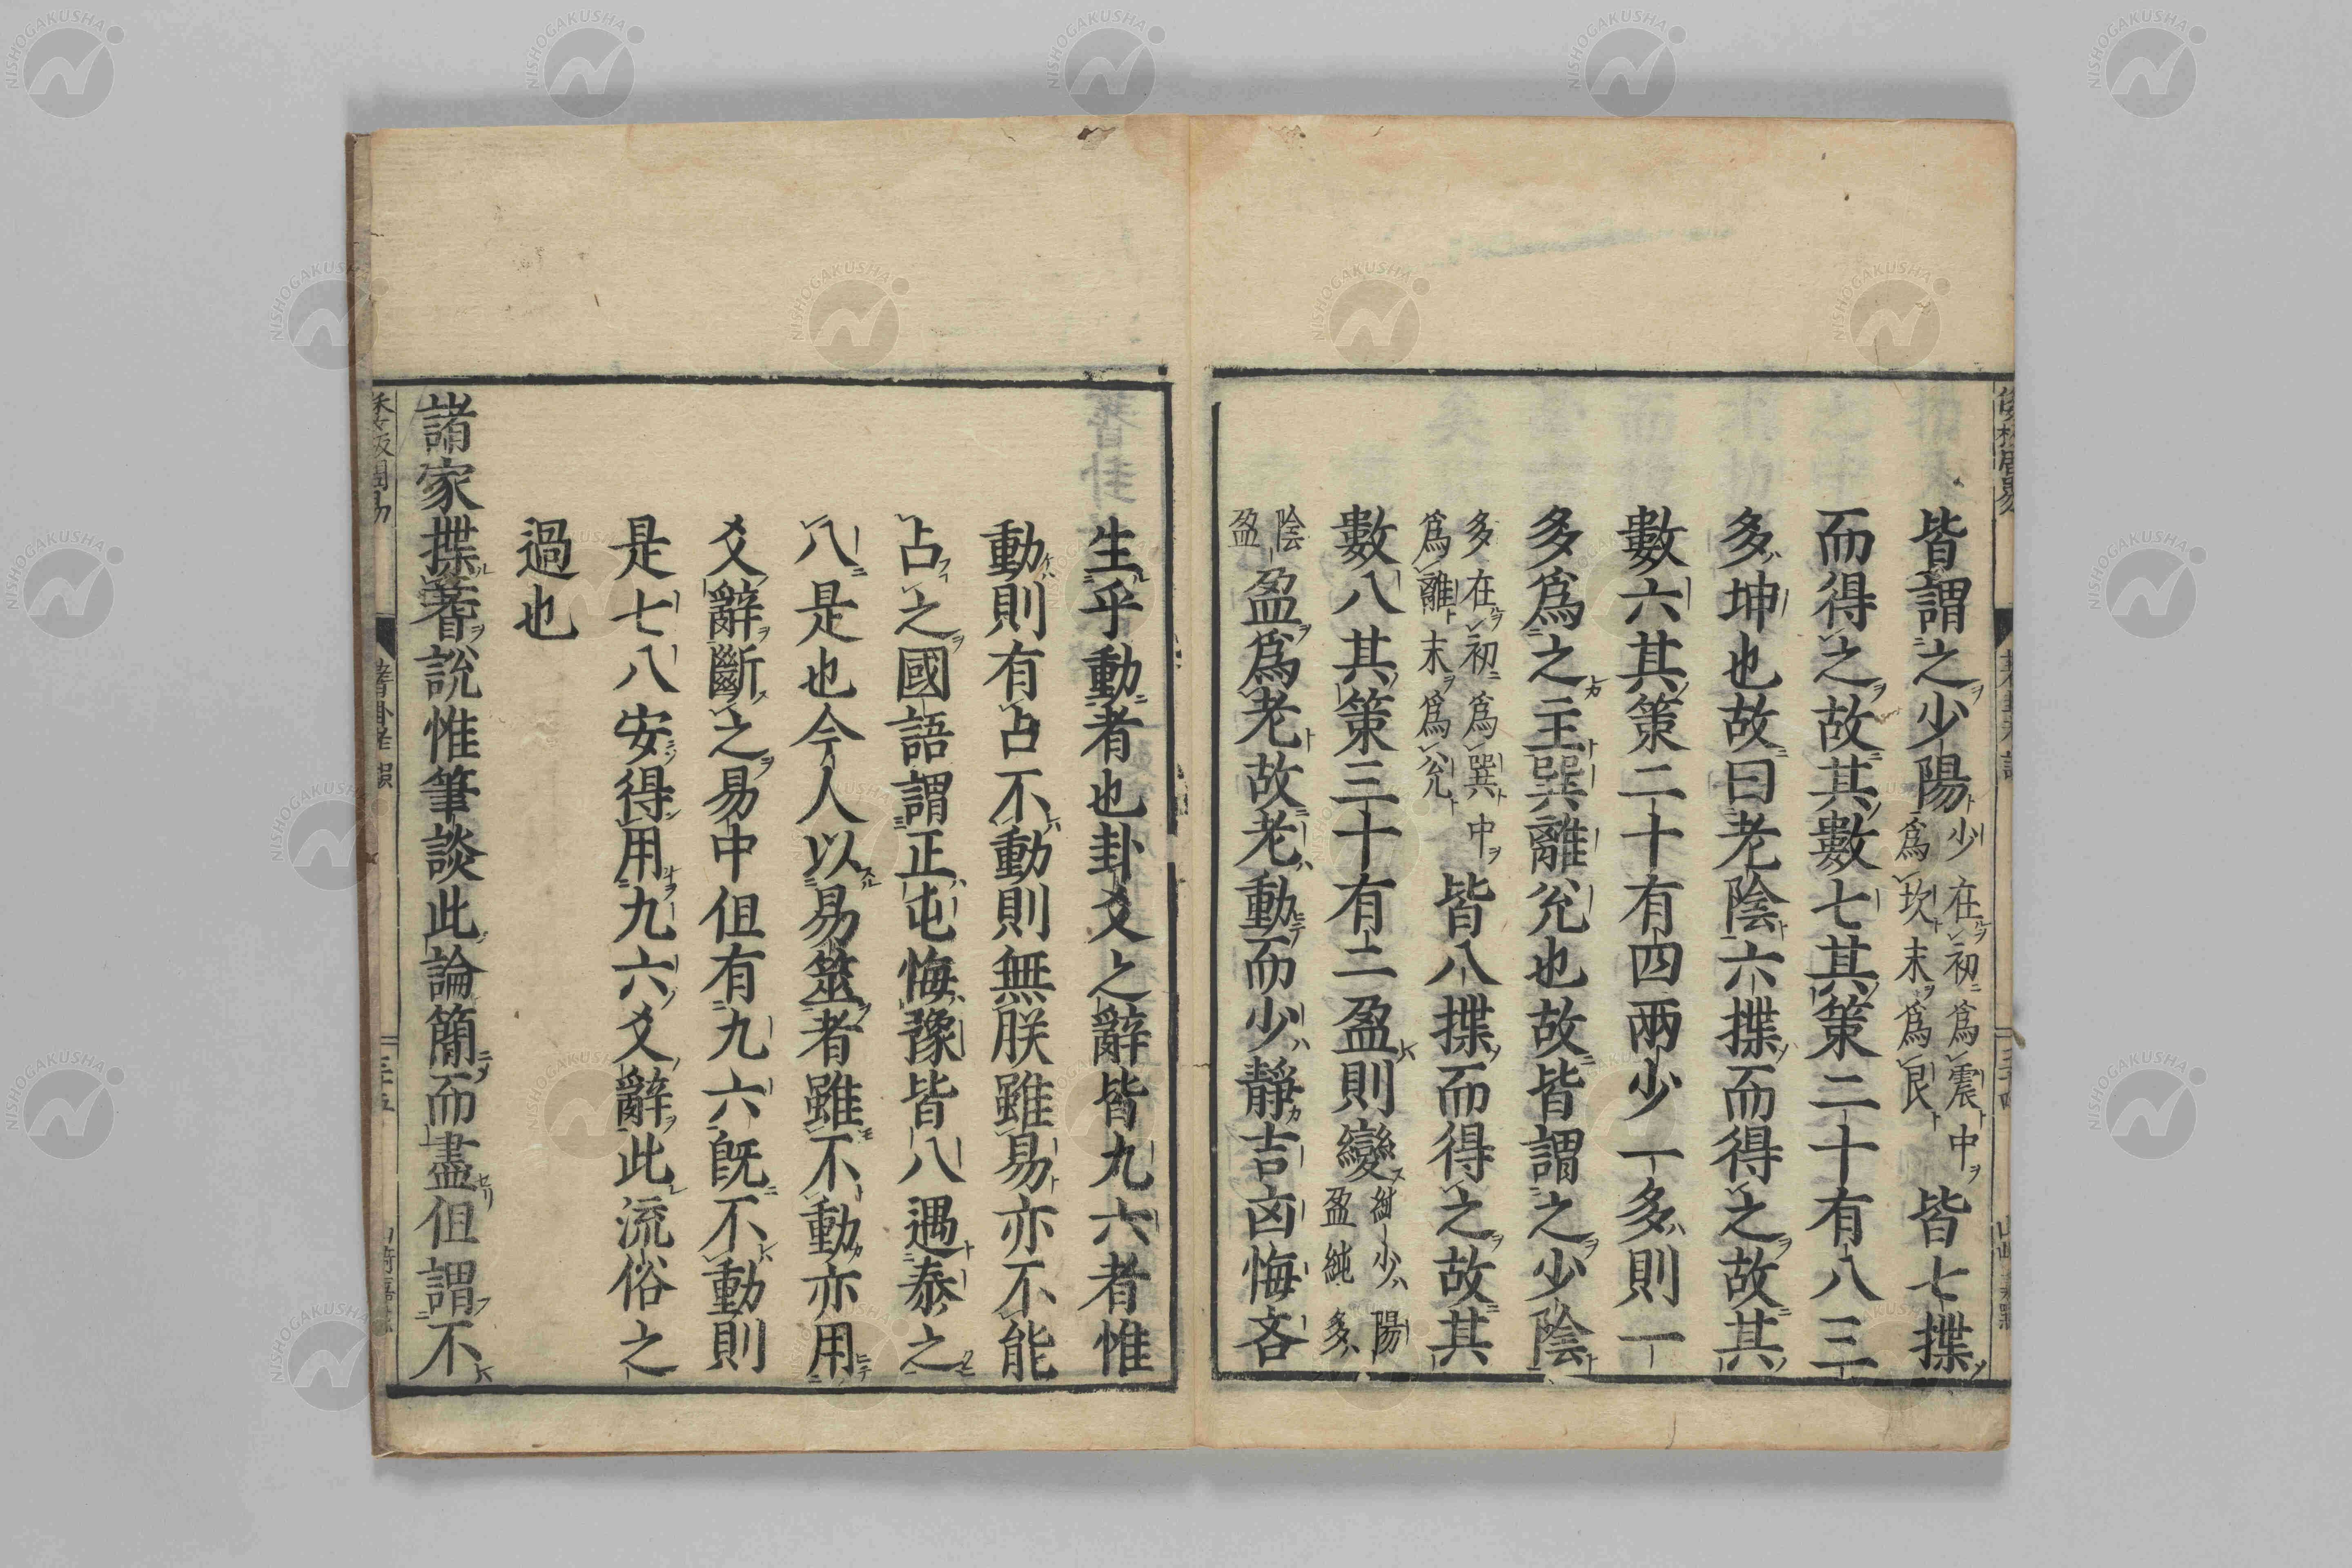 皆謂之少陽少在初爲震中爲坎末爲艮皆七揲
而得之故其數七其策二十有八三
多坤也故曰老陰六揲而得之故其
數六其策二十有四兩少一多則一
多爲之主巽離兌也故皆謂之少陰
多在初爲巽中爲離末爲兌皆八揲而得之故其
數八其策三十有二盈則變純少陽盈純多
陰盈盈爲老故老動而少靜吉凶悔吝
生乎動者也卦爻之辭皆九六者惟
動則有占不動則無朕雖易亦不能
占之國語謂正屯悔豫皆八遇泰之
八是也今人以易筮者雖不動亦用
爻辭斷之易中但有九六既不動則
是七八安得用九六爻辭此流俗之
過也
諸家揲蓍說惟筆談此論簡而盡但謂不
NISHOGAKUSHA